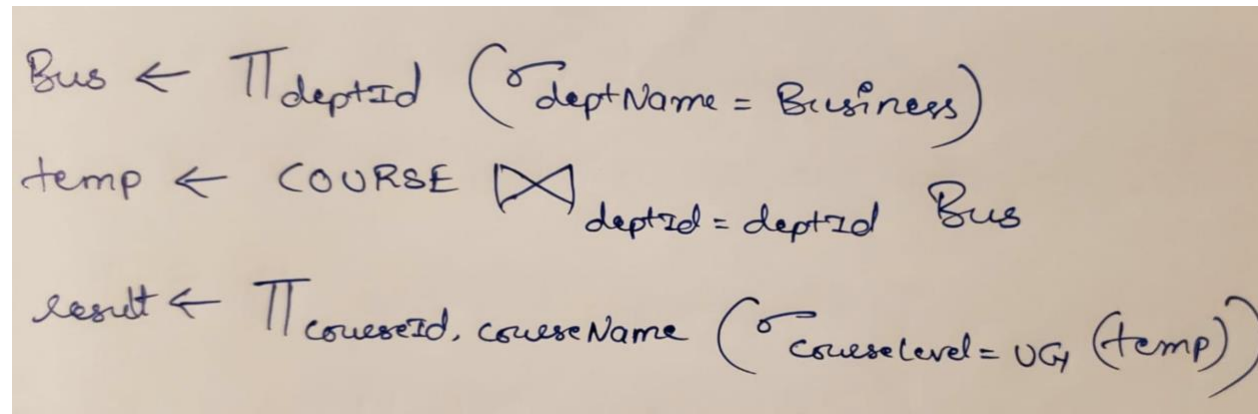 Bus ← π deptId (σ deptName = Business)
temp ← COURSE ⋈ deptId = deptId Bus
result ← π courseId, courseName (σ courseLevel = UG (temp))